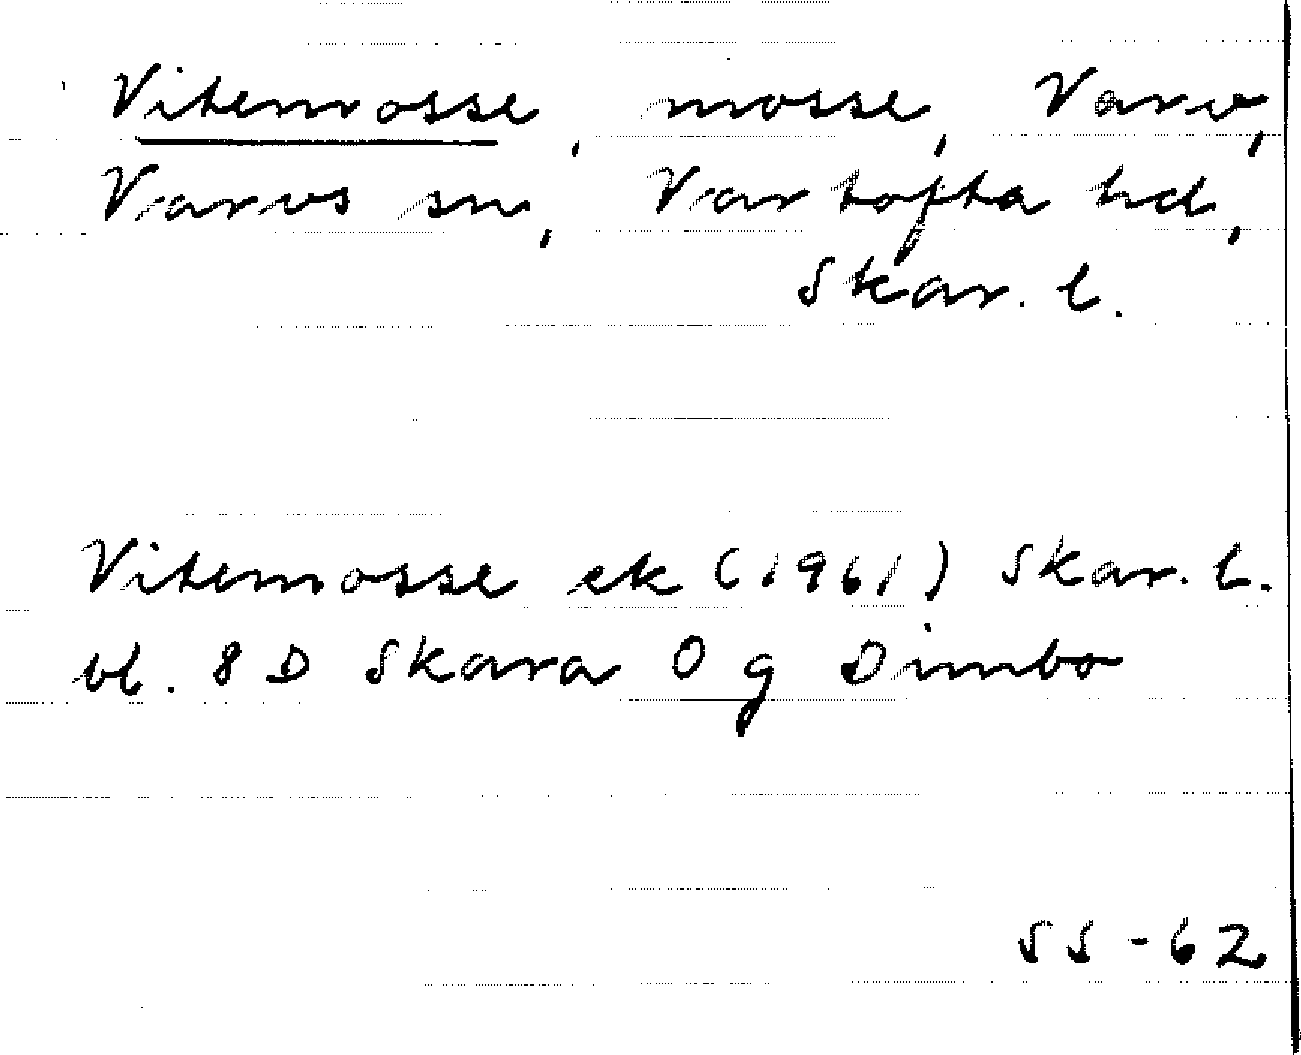 Vitemosse, mosse, Varv,
Varvs sn, Vartofta hd,
Skar. l.
Vitemosse ek (1961) Skar. l.
bl. 8 D Skara 0 g Dimbo
SS-62